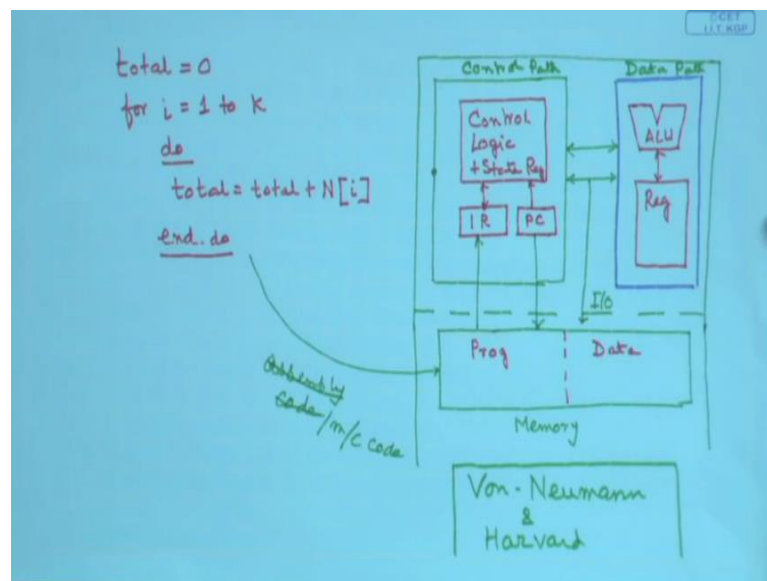 ©CET
I.I.T. KGP
total = 0
for i = 1 to K
do
total = total + N[i]
end. do
Assembly
Code/m/c code
Control Path
Data Path
Control
Logic
+ State Reg
IR
PC
ALU
Reg
I/O
Prog
Data
Memory
Von-Neumann
&
Harvard